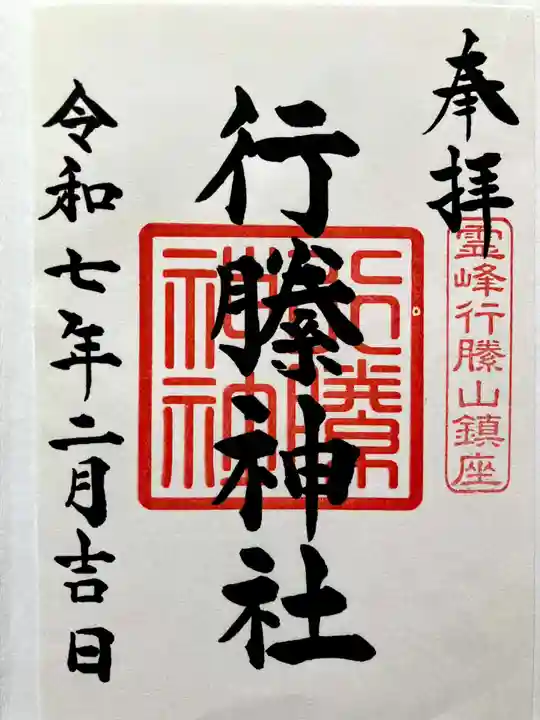 奉拝
霊峰行縢山鎮座
行縢神社
令和七年二月吉日